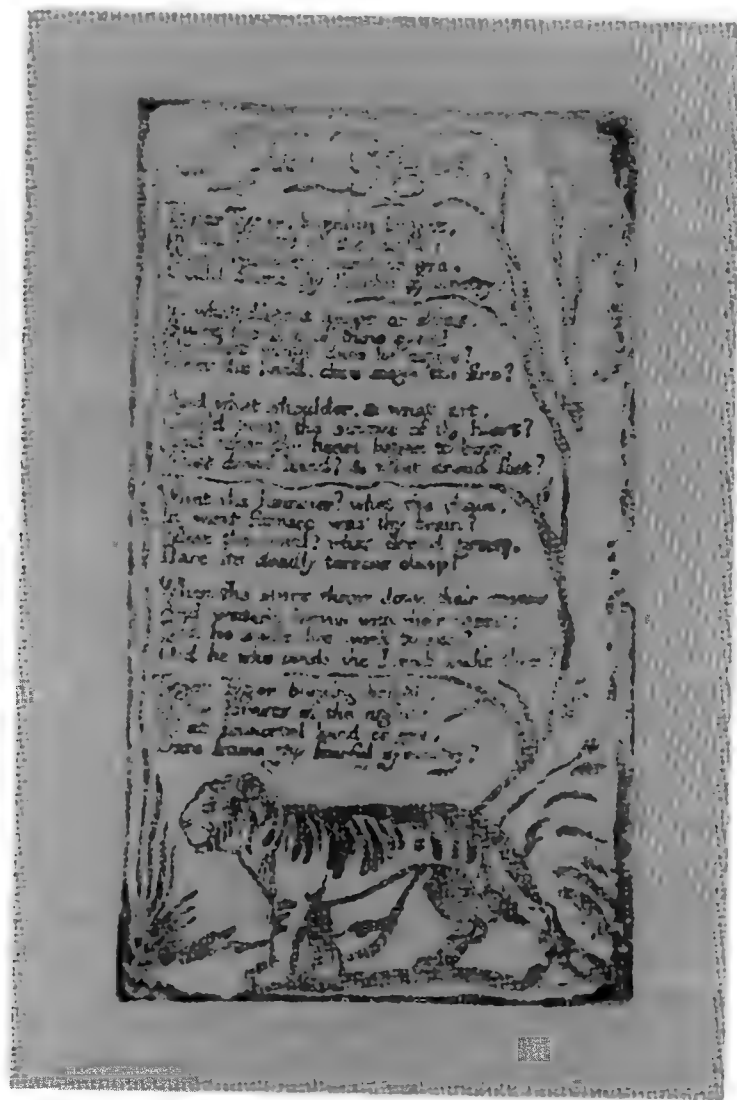 burning bright,
the
eye,
Could frame thy
what deeps or skies.
the of thine eyes?
what wings dare he aspire?
the hand, dare the fire?
And what shoulder, & what art,
the sinews of thy heart?
And when thy heart began to beat,
What dread hand? & what dread feet?
What the hammer? what the chain,
In what furnace was thy brain?
What the anvil? what dread grasp,
Dare its deadly terrors clasp?
When the stars threw down their spears
And water'd heaven with their tears:
Did he smile his work to see?
Did he who made the Lamb make thee?
Tyger Tyger burning bright,
In the forests of the night:
What immortal hand or eye,
Dare frame thy fearful symmetry?